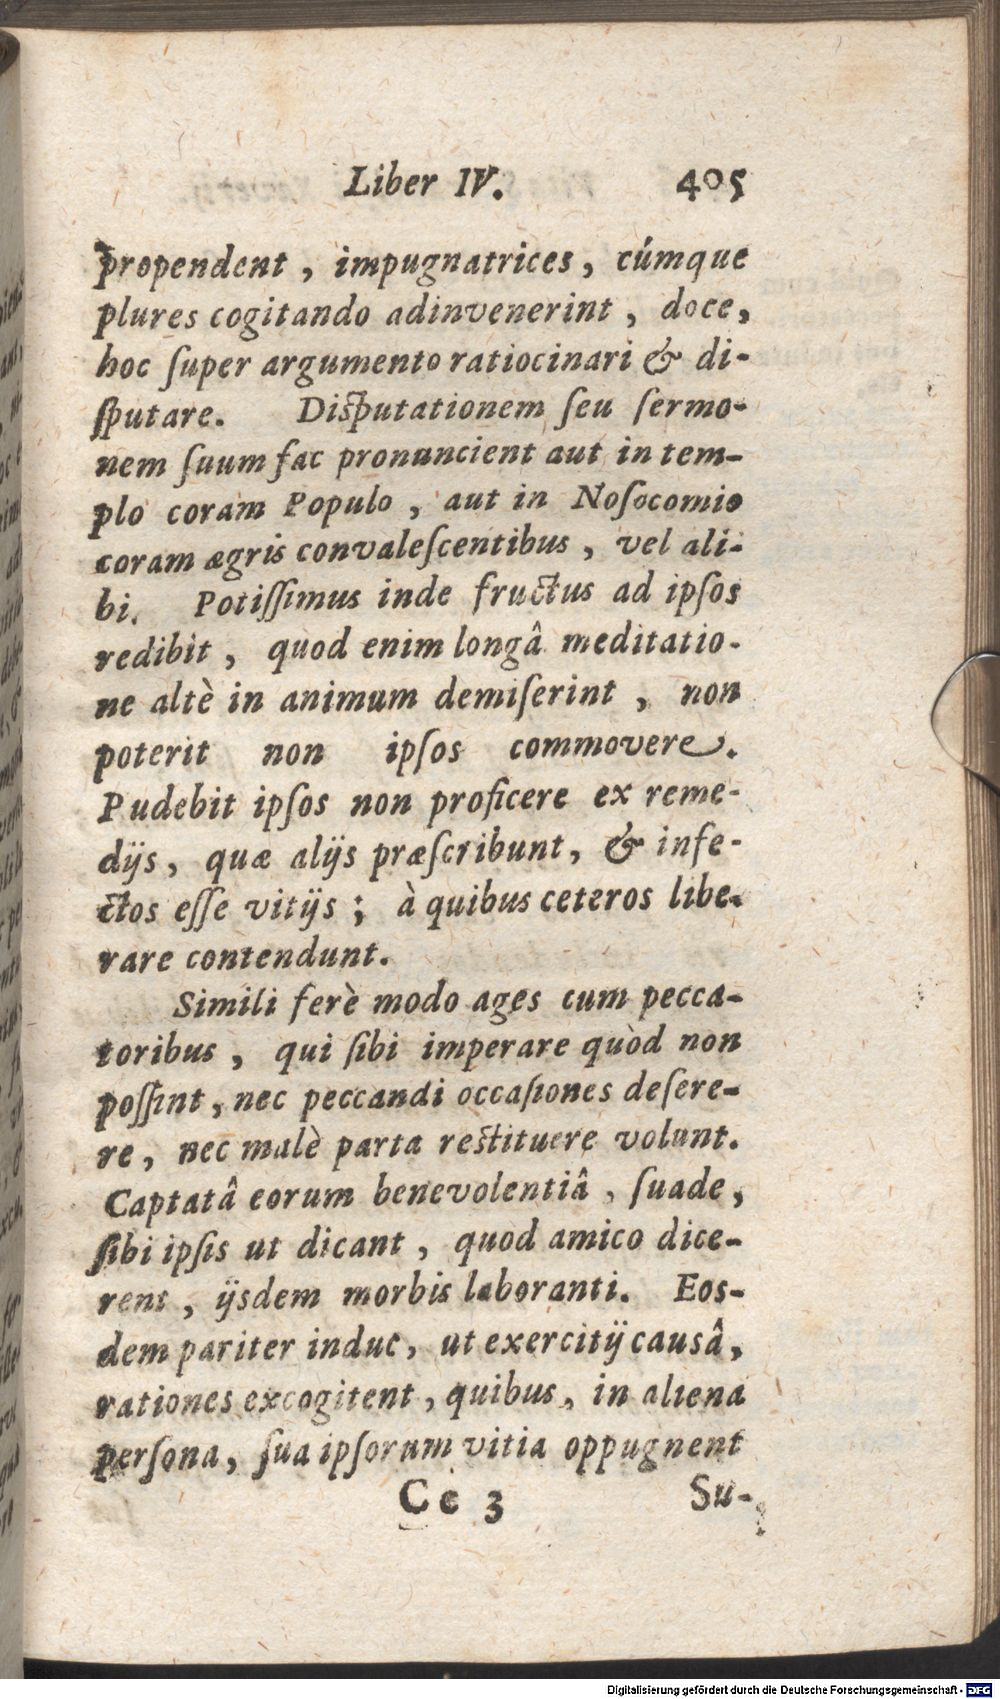 Liber IV. 405
propendent, impugnatrices, cúmque
plures cogitando adinvenerint, doce,
hoc ſuper argumento ratiocinari & di-
ſputare. Diſputationem ſeu ſermo-
nem ſuum fac pronuncient aut in tem-
plo coram Populo, aut in Noſocomio
coram ægris convaleſcentibus, vel ali-
bi. Potiſſimus inde fructus ad ipſos
redibit, quod enim longâ meditatio-
ne altè in animum demiſerint, non
poterit non ipſos commovere.
Pudebit ipſos non proficere ex reme-
dijs, quæ alijs præſcribunt, & infe-
ctos eſſe vitijs; à quibus ceteros libe-
rare contendunt.
Simili ferè modo ages cum pecca-
toribus, qui ſibi imperare quòd non
poſſint, nec peccandi occaſiones deſere-
re, nec malè parta reſtituere volunt.
Captatâ eorum benevolentiâ, ſuade,
ſibi ipſis ut dicant, quod amico dice-
rent, ijsdem morbis laboranti. Eos-
dem pariter induc, ut exercitij causâ,
rationes excogitent, quibus, in aliena
perſona, ſua ipſorum vitia oppugnent
Cc 3 Su-
Digitalisierung gefördert durch die Deutsche Forschungsgemeinschaft - DFG